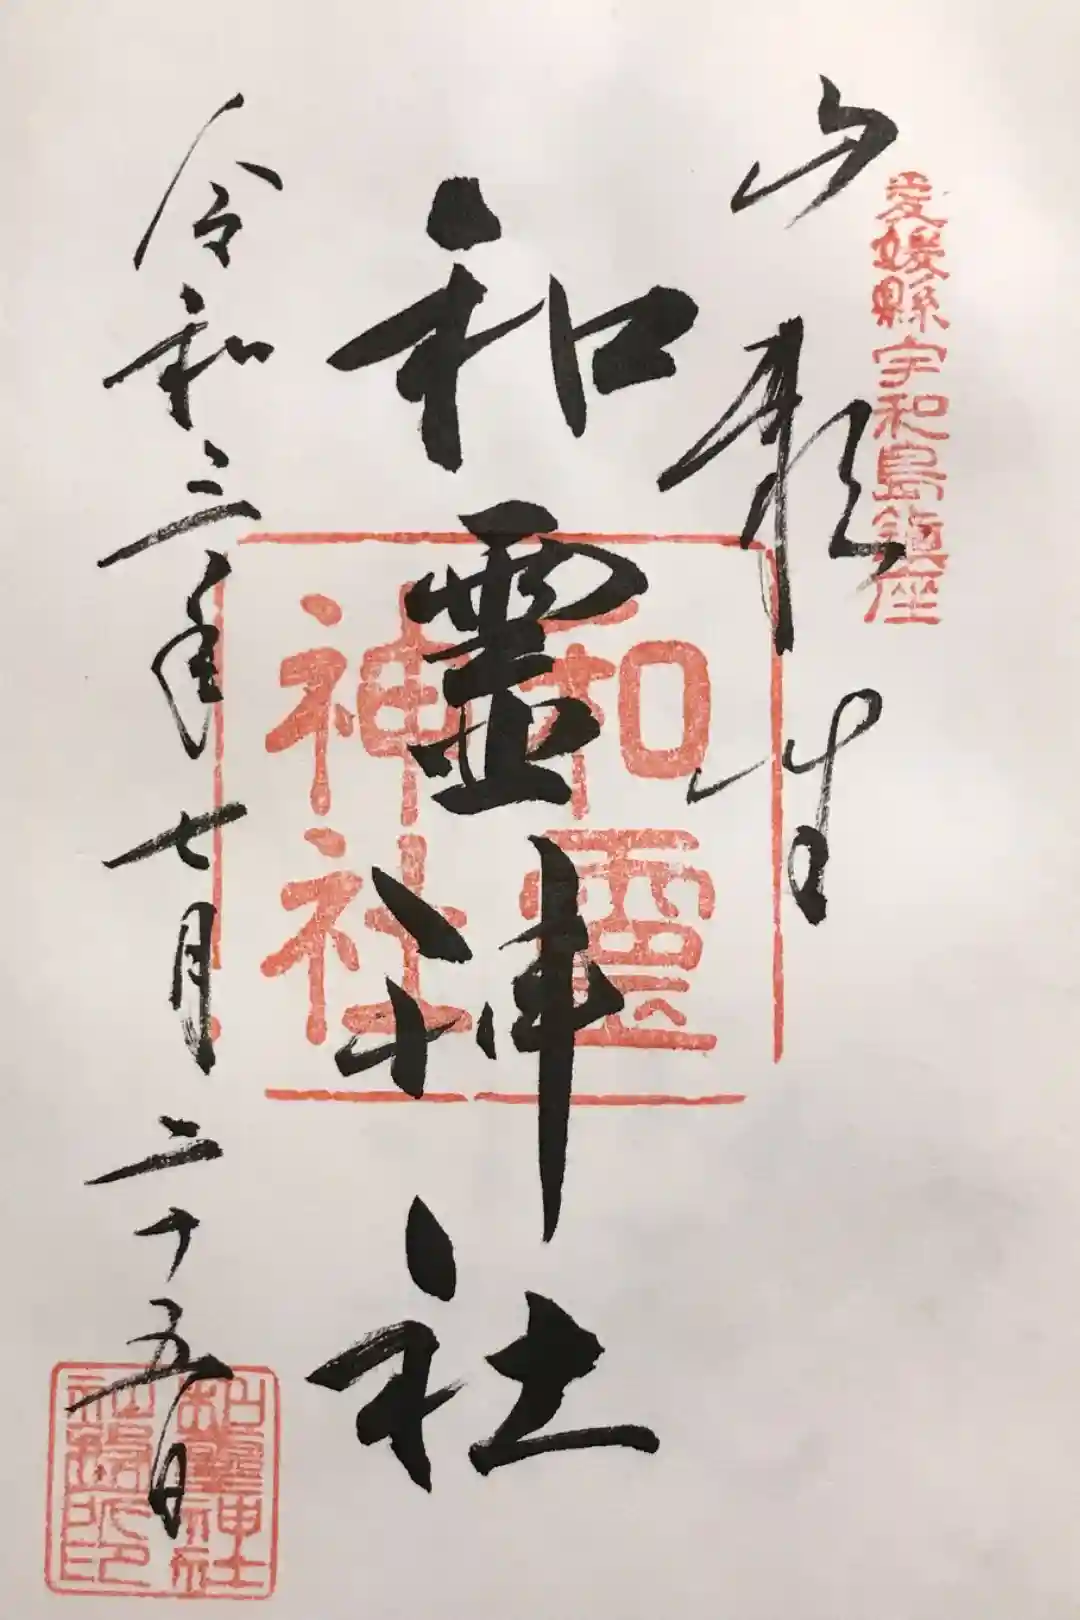 愛媛縣宇和島鎮座
山頼
和霊神社
和霊
神社
令和三年七月二十五日
和霊神社
社務所印